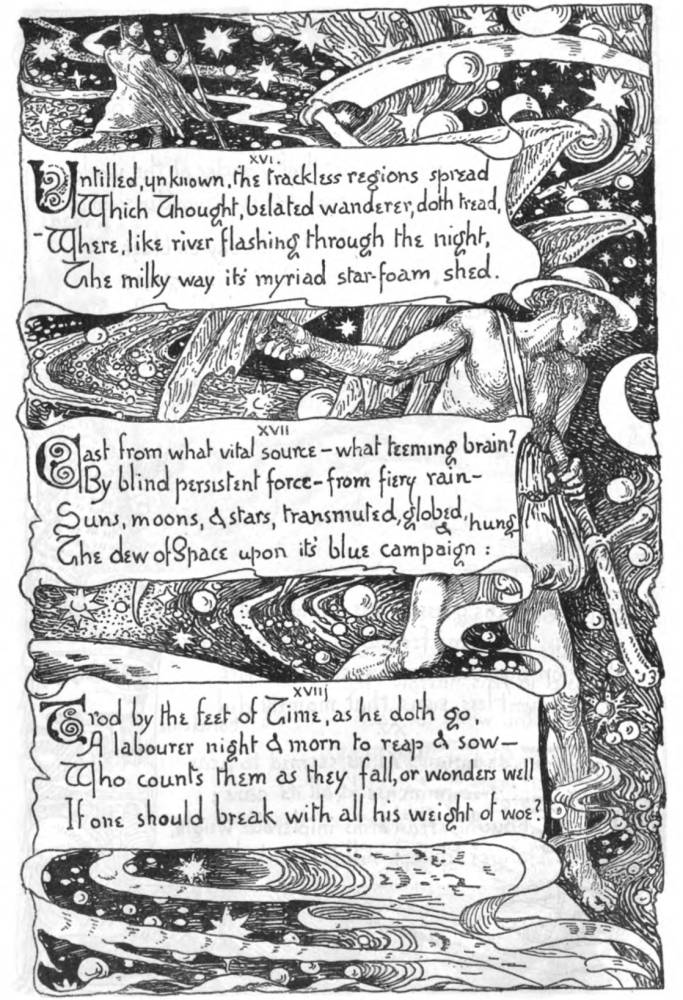 XVI.
Untilled, unknown, the trackless regions spread
Which Thought, belated wanderer, doth tread,
-Where, like river flashing through the night,
The milky way its' myriad star-foam shed.
XVII
Cast from what vital source - what teeming brain?
By blind persistent force - from fiery rain -
Suns, moons, & stars, transmuted, globed, & hung
The dew of Space upon its' blue campaign :
XVIIJ
Trod by the feet of Time, as he doth go,
A labourer night & morn to reap & sow —
Who counts them as they fall, or wonders well
If one should break with all his weight of woe?